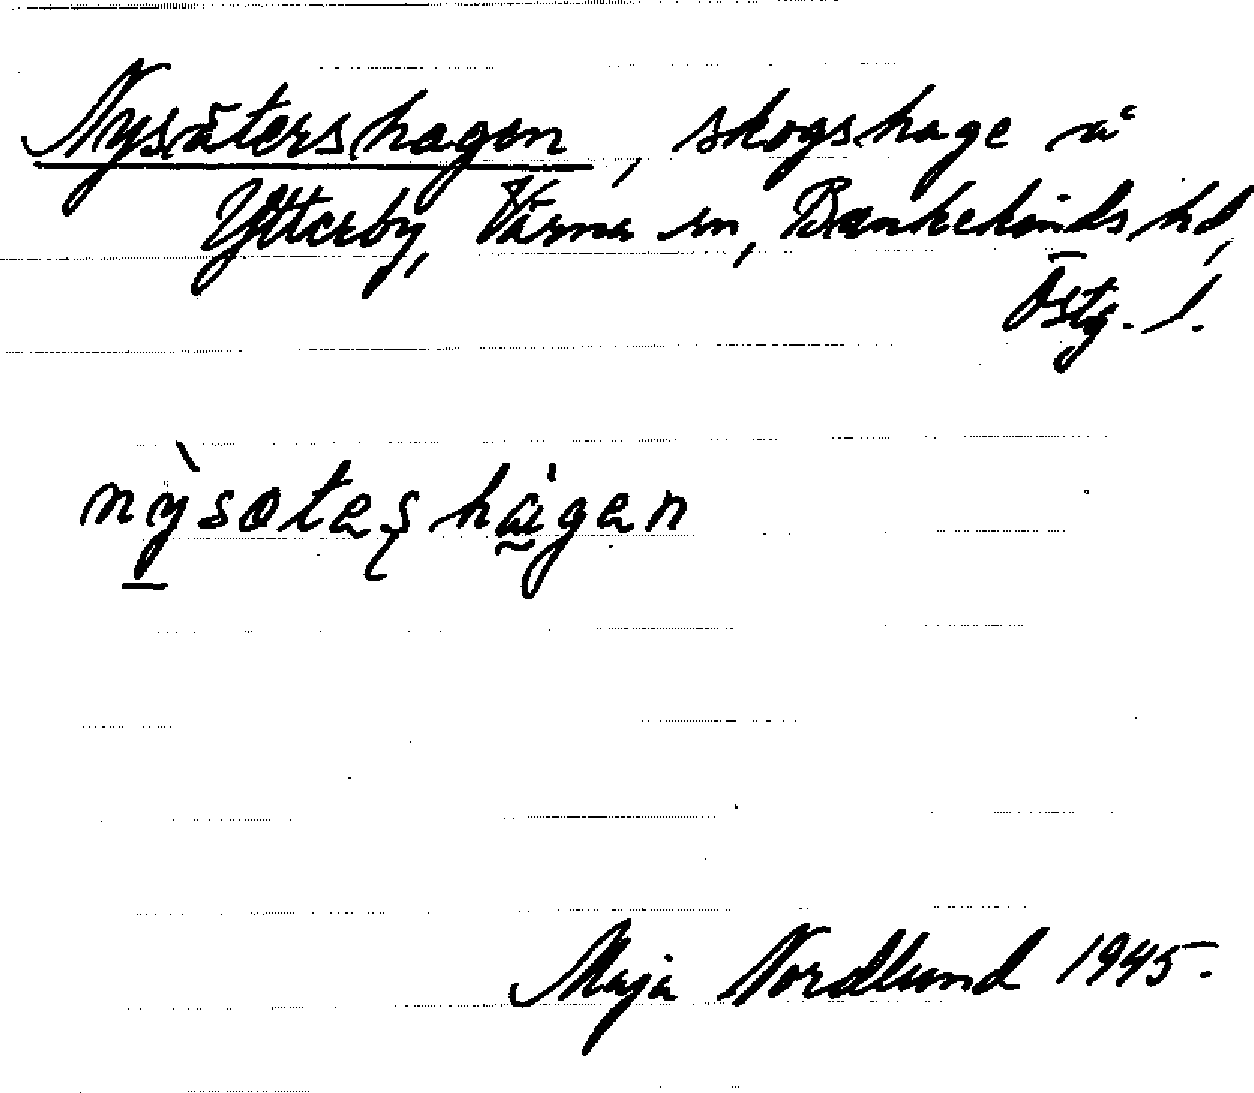 Nysätershagen, skogshage å
Ytterby, Värna sn, Bankekinds hd,
Östg. l.
nỳsoteshàgen
Maja Nordlund 1945.